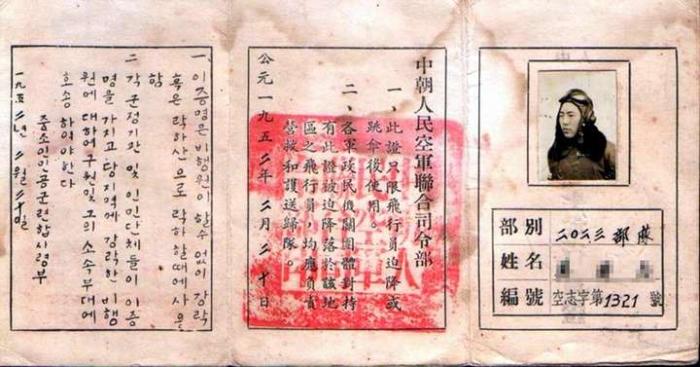 一, 이증명은비행원이할수없이강락
혹은락하산으로락하할때에사용
함
二 각군정기관및인민단체들이이증
명을가지고당지역에강락한비행
원에대하여구원및그의소속부대에
호송하여야한다
중조인민공군련합사령부
一九五二年二月二十日
中朝人民空軍聯合司令部
一、此證只限飛行員迫降或
跳傘後使用。
二、各軍政民機關團體對持
有此證被迫降落於該地
區之飛行員，均應負責
營救和護送歸隊。
公元一九五二年二月二十日
部別 二〇二三部隊
姓名
編號 空志字第1321號